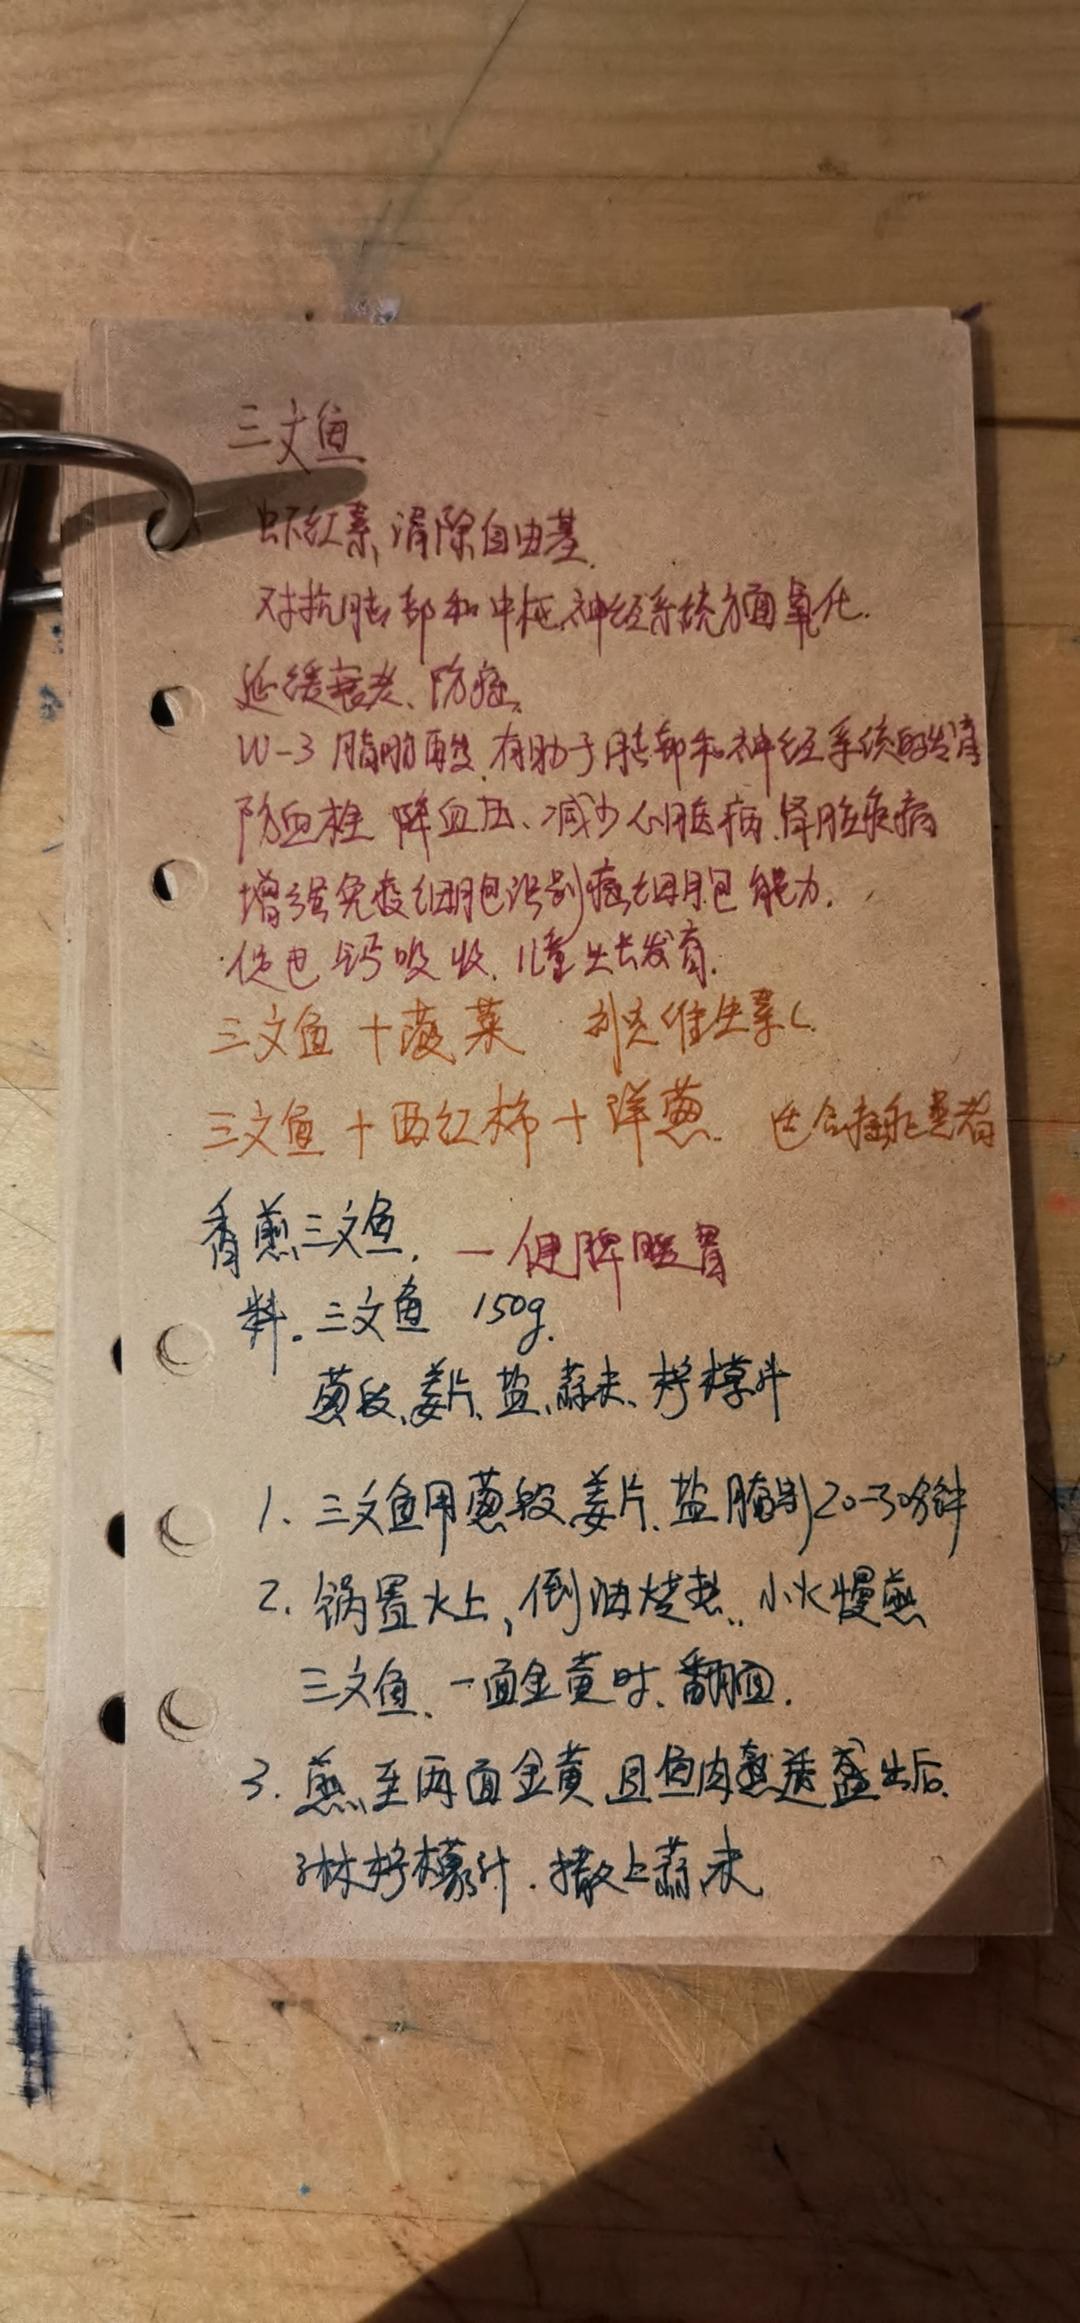 三文鱼
虾红素、清除自由基.
对抗脑部和中枢神经系统方面氧化.
延缓衰老、防癌.
W-3 脂肪酸.有助于脑部和神经系统的发育
防血栓 降血压、减少心脏病.肾脏疾病
增强免疫细胞识别癌细胞能力.
促进钙吸收.儿童生长发育.
三文鱼+蔬菜 补充维生素C.
三文鱼+西红柿+洋葱. 适合患者
香煎三文鱼. 一健脾暖胃
料.三文鱼 150g.
葱段、姜片、盐、蒜末、柠檬汁
1.三文鱼用葱段、姜片、盐腌制20-30分钟
2.锅置火上,倒油烧热.小火慢煎
三文鱼、一面金黄时、翻面.
3.煎至两面金黄且鱼肉熟透盛出后.
淋柠檬汁.撒上蒜末